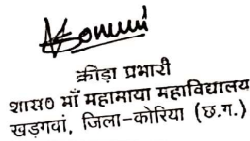 क्रीड़ा प्रभारी
शास० माँ महामाया महाविद्यालय
खड़गवां, जिला-कोरिया (छ.ग.)